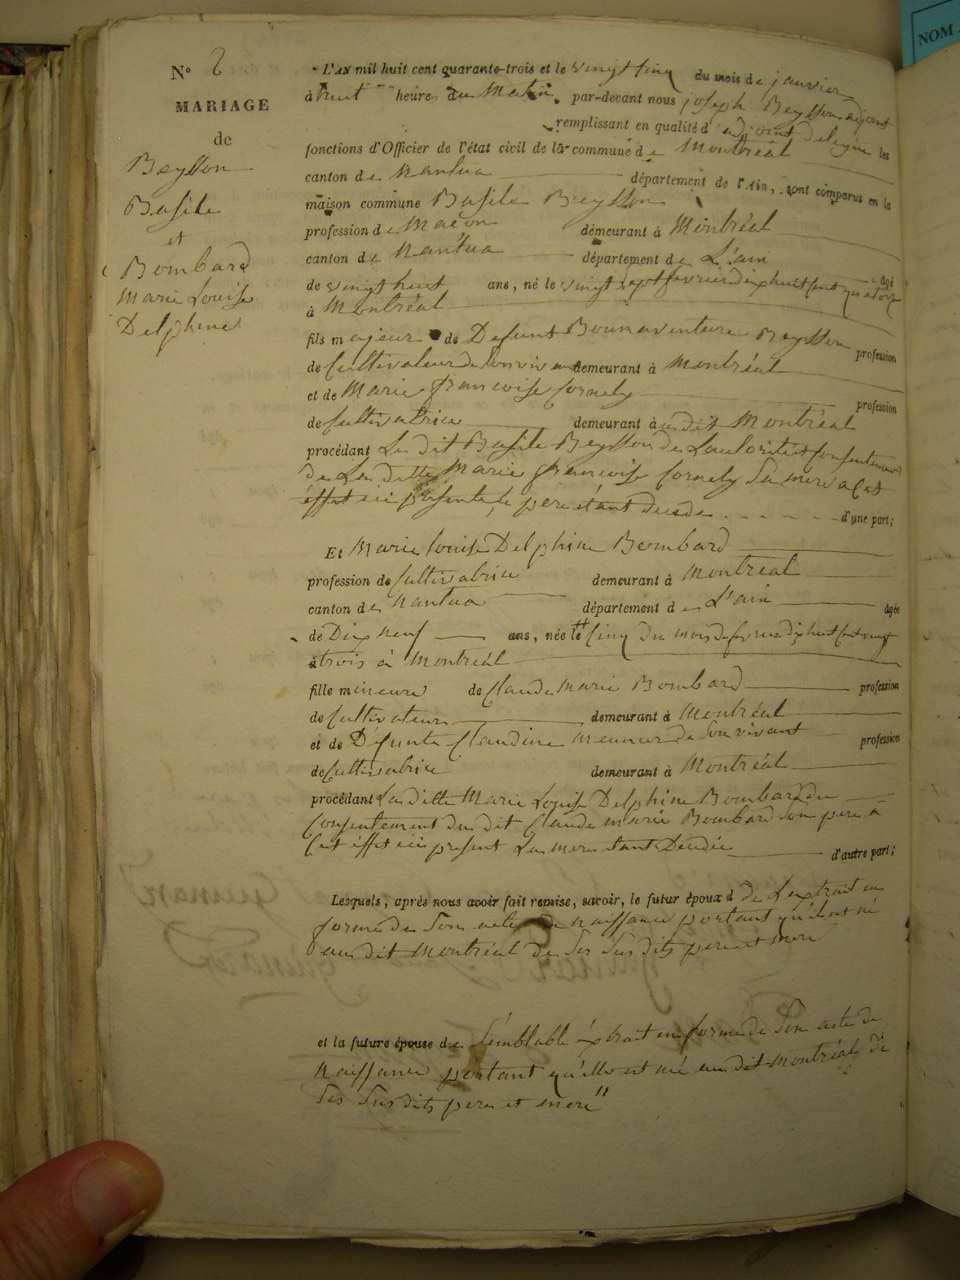 NOM
N° 2
MARIAGE
de
Beysson
Basile
et
Bombard
Marie Louise
Delphine
L'AN mil huit cent quarante-trois et le vingt cinq du mois de janvier
à huit heures du Matin, par-devant nous joseph Beysson adjoint
remplissant en qualité d'adjoint délégué les
fonctions d'Officier de l'état civil de la commune de Montréal
canton de Nantua département de l'Ain, sont comparus en la
maison commune Basile Beysson
profession de Maçon demeurant à Montréal
canton de Nantua département de L'ain
de vingt huit ans, né le vingt sept fevrier dix huit cent quatorze âgé
à Montréal
fils majeur de Defunt Bounaventure Beysson profession
de Cultivateur de son vivant demeurant à Montréal
et de Marie francoise Cornely profession
de Cultivatrice demeurant à u dit Montréal
procédant Le dit Basile Beysson de L'autorité et consentement
de La ditte Marie francoise Cornely Sa mere a Cet
effet ici présente, le père étant décédé d'une part;
Et Marie louise Delphine Bombard
profession de Cultivatrice demeurant à Montréal
canton de Nantua département de L'ain âgée
de Dix neuf ans, née le Cinq du mois de dix huit cent vingt
trois à Montréal
fille mineure de Claude Marie Bombard profession
de Cultivateur demeurant à Montréal
et de Défunte Claudine de Son vivant profession
de Cultivatrice demeurant à Montréal
procédant La ditte Marie Louise Delphine Bombard du
Consentement du dit Claude Marie Bombard Son pere a
Cet effet ici présent La mere étant Décédée d'autre part;
Lesquels, après nous avoir fait remise, savoir, le futur époux de L'extrait en
forme de Son acte de Naissance portant qu'il est né
au dit Montréal de Ses Sus dits pere et mere
et la future épouse de Semblable éxtrait en forme de Son acte de
Naissance portant qu'elle est né au dit Montréal de
Ses Sus dits pere et mere"